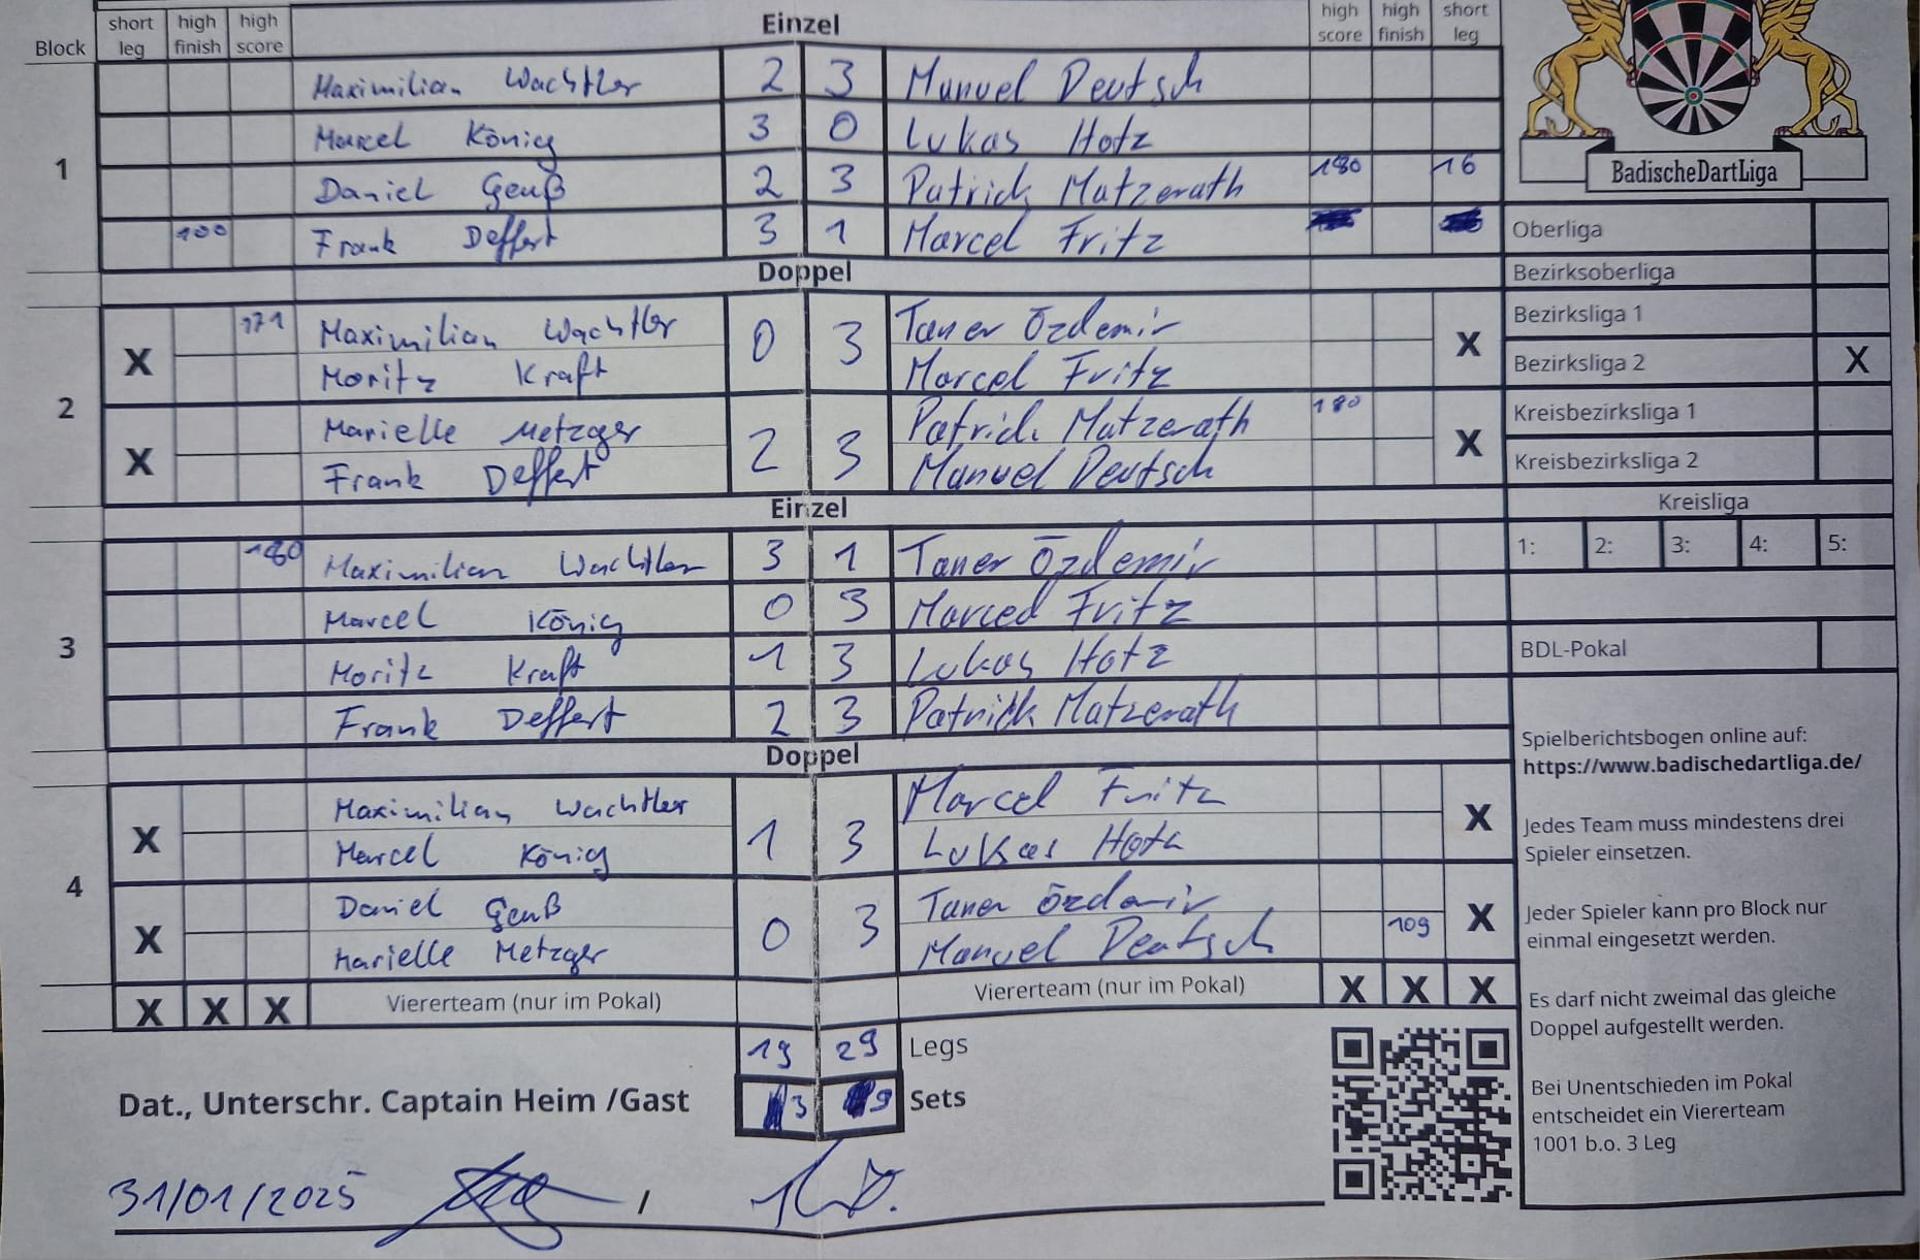 Block short leg high finish high score Einzel high score high finish short leg
1
Maximilian Wachtler 2 3 Manuel Deutsch
Marcel König 3 0 Lukas Hotz
Daniel Geuß 2 3 Patrick Matzerath 180 16
100 Frank Deffert 3 1 Marcel Fritz
Doppel
2
X 171 Maximilian Wachtler 0 3 Taner Özdemir X
Moritz Kraft Marcel Fritz
X Marielle Metzger 2 3 Patrick Matzerath 180 X
Frank Deffert Manuel Deutsch
Einzel
3
180 Maximilian Wachtler 3 1 Taner Özdemir
Marcel König 0 3 Marcel Fritz
Moritz Kraft 1 3 Lukas Hotz
Frank Deffert 2 3 Patrick Matzerath
Doppel
4
X Maximilian Wachtler 1 3 Marcel Fritz X
Marcel König Lukas Hotz
X Daniel Geuß 0 3 Taner Özdemir X
Marielle Metzger Manuel Deutsch 109
X X X Viererteam (nur im Pokal) Viererteam (nur im Pokal) X X X
19 29 Legs
3 9 Sets
Dat., Unterschr. Captain Heim /Gast
31/01/2025 /
BadischeDartLiga
Oberliga
Bezirksoberliga
Bezirksliga 1
Bezirksliga 2 X
Kreisbezirksliga 1
Kreisbezirksliga 2
Kreisliga
1: 2: 3: 4: 5:
BDL-Pokal
Spielberichtsbogen online auf:
https://www.badischedartliga.de/
Jedes Team muss mindestens drei
Spieler einsetzen.
Jeder Spieler kann pro Block nur
einmal eingesetzt werden.
Es darf nicht zweimal das gleiche
Doppel aufgestellt werden.
Bei Unentschieden im Pokal
entscheidet ein Viererteam
1001 b.o. 3 Leg